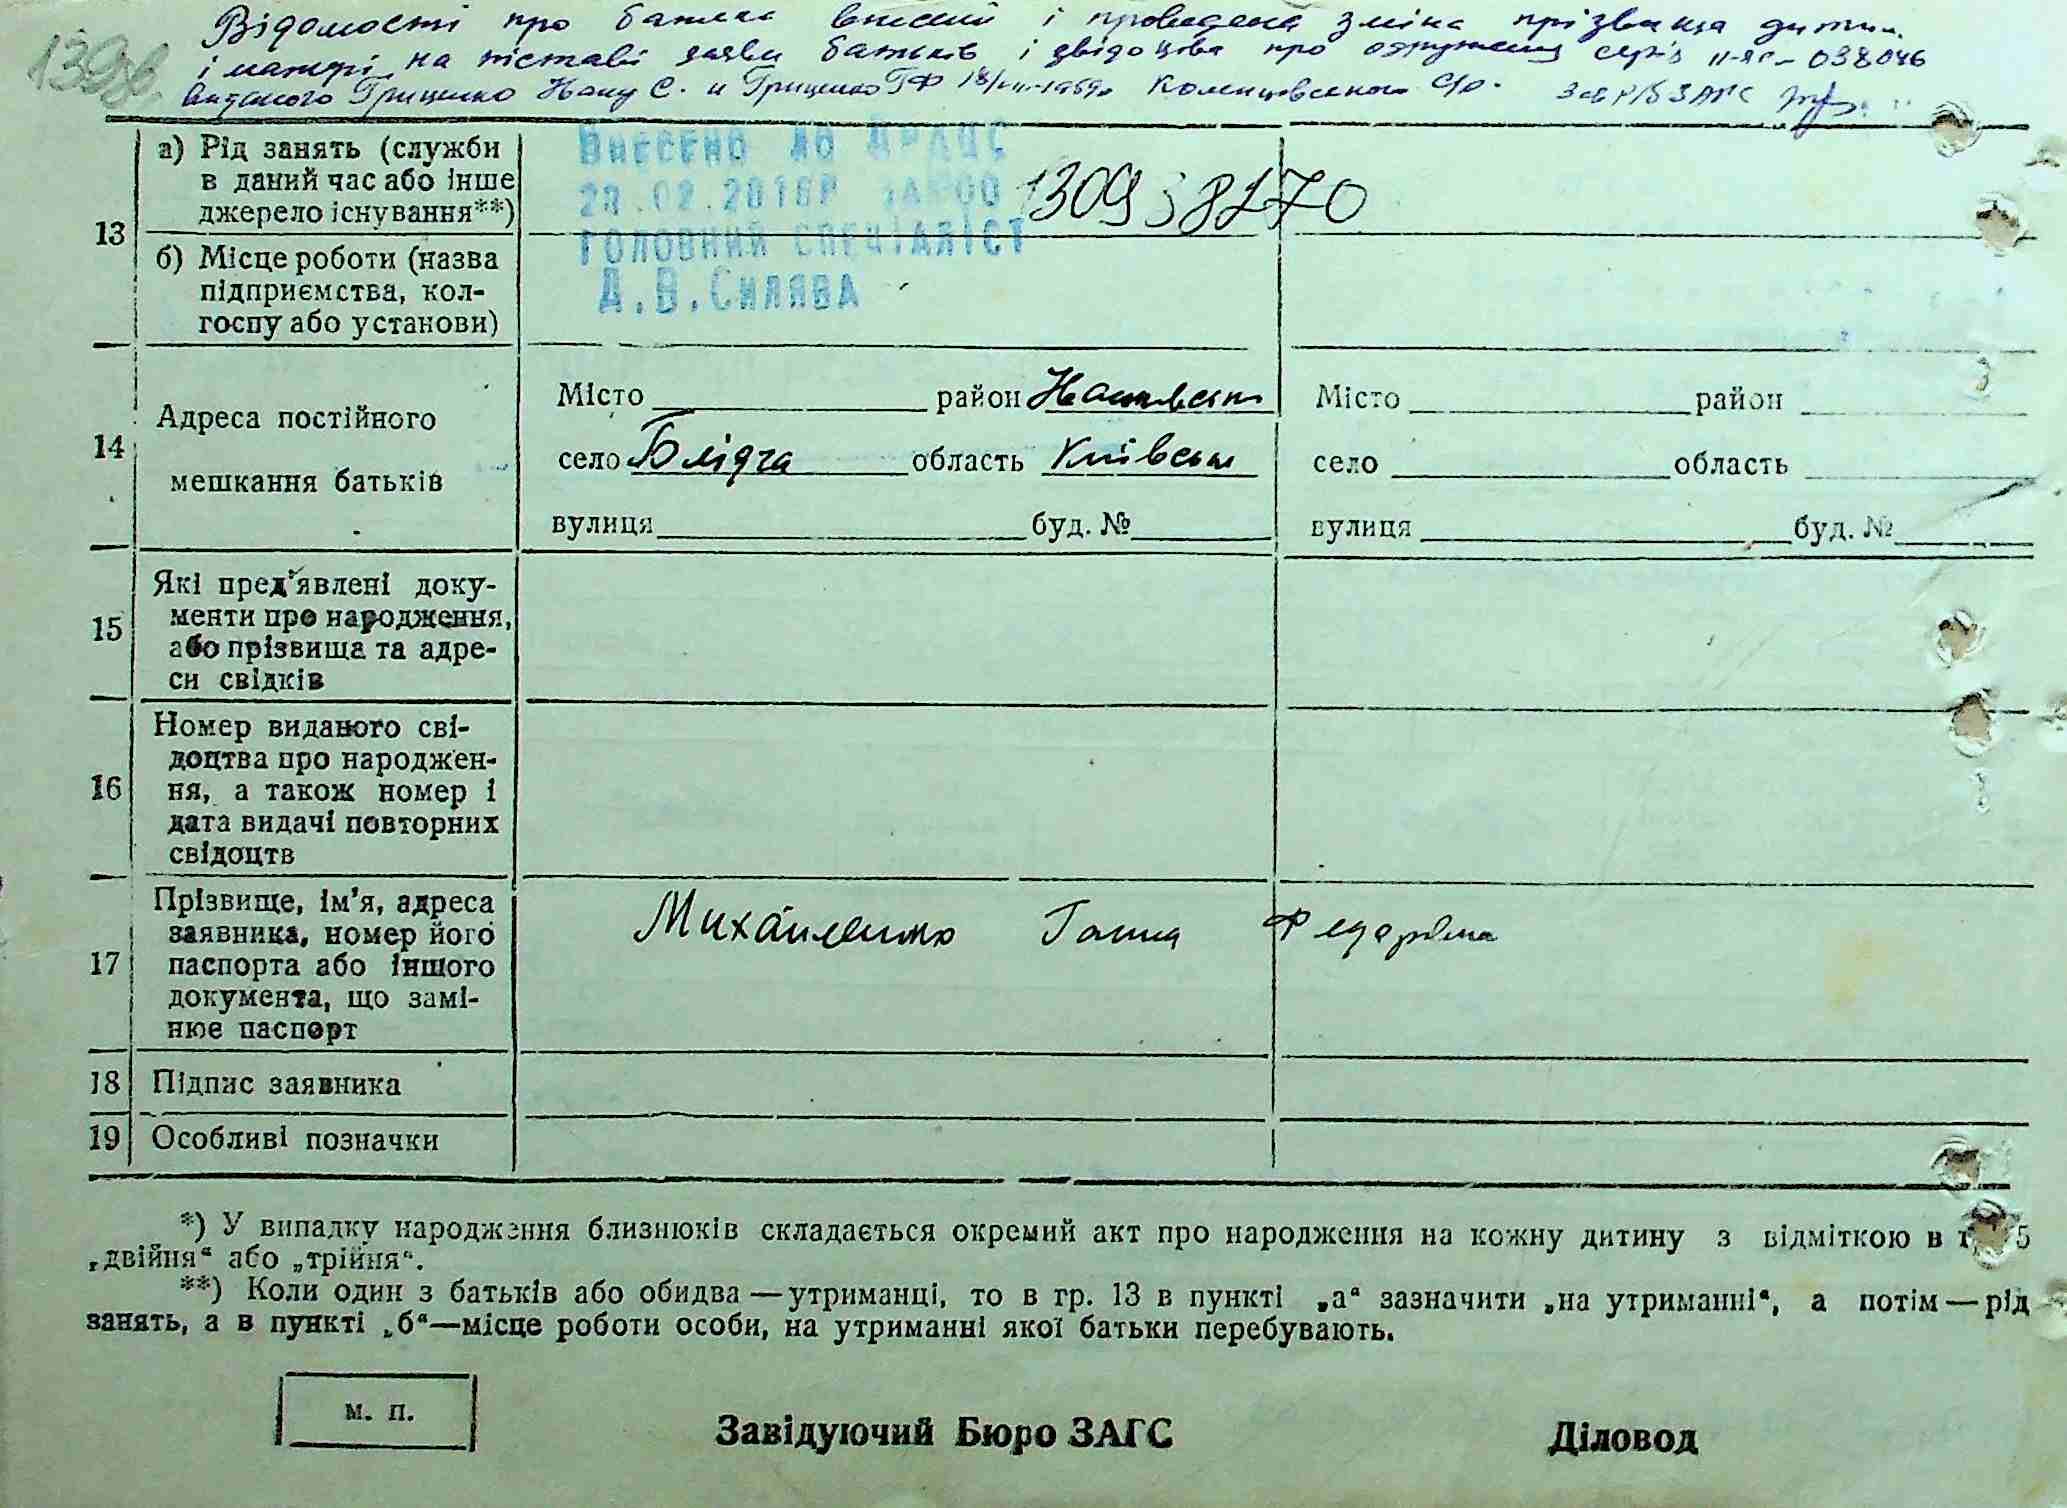 Відомості про батька внесені і проведена зміна прізвища дитини
і матері на підставі заяви батьків і свідоцтва про одруження серія II-ЯС-038046
виданого Гриценко Івану С. и Гриценко Г Ф 18/VII-1959р С/р. Зав Р/Б ЗАГС
139
13
а) Рід занять (служби
в даний час або інше
джерело існування**)
б) Місце роботи (назва
підприємства, кол-
госпу або установи)
Внесено до ДРАЦС
28.02.2018р за №00 130938270
головний спеціаліст
Д.В.Силява
14
Адреса постійного
мешкання батьків
Місто район
село Блідча область Київськ
вулиця буд. №
Місто район
село область
вулиця буд. №
15
Які пред'явлені доку-
менти про народження,
або прізвища та адре-
си свідків
16
Номер виданого сві-
доцтва про народжен-
ня, а також номер і
дата видачі повторних
свідоцтв
17
Прізвище, ім'я, адреса
заявника, номер його
паспорта або іншого
документа, що замі-
нює паспорт
Михайленко Ганна Федорівна
18 Підпис заявника
19 Особливі позначки
*) У випадку народження близнюків складається окремий акт про народження на кожну дитину з відміткою в 5
„двійня“ або „трійня“.
**) Коли один з батьків або обидва—утриманці, то в гр. 13 в пункті „а“ зазначити „на утриманні“, а потім—рід
занять, а в пункті „б“—місце роботи особи, на утриманні якої батьки перебувають.
м. п.
Завідуючий Бюро ЗАГС Діловод